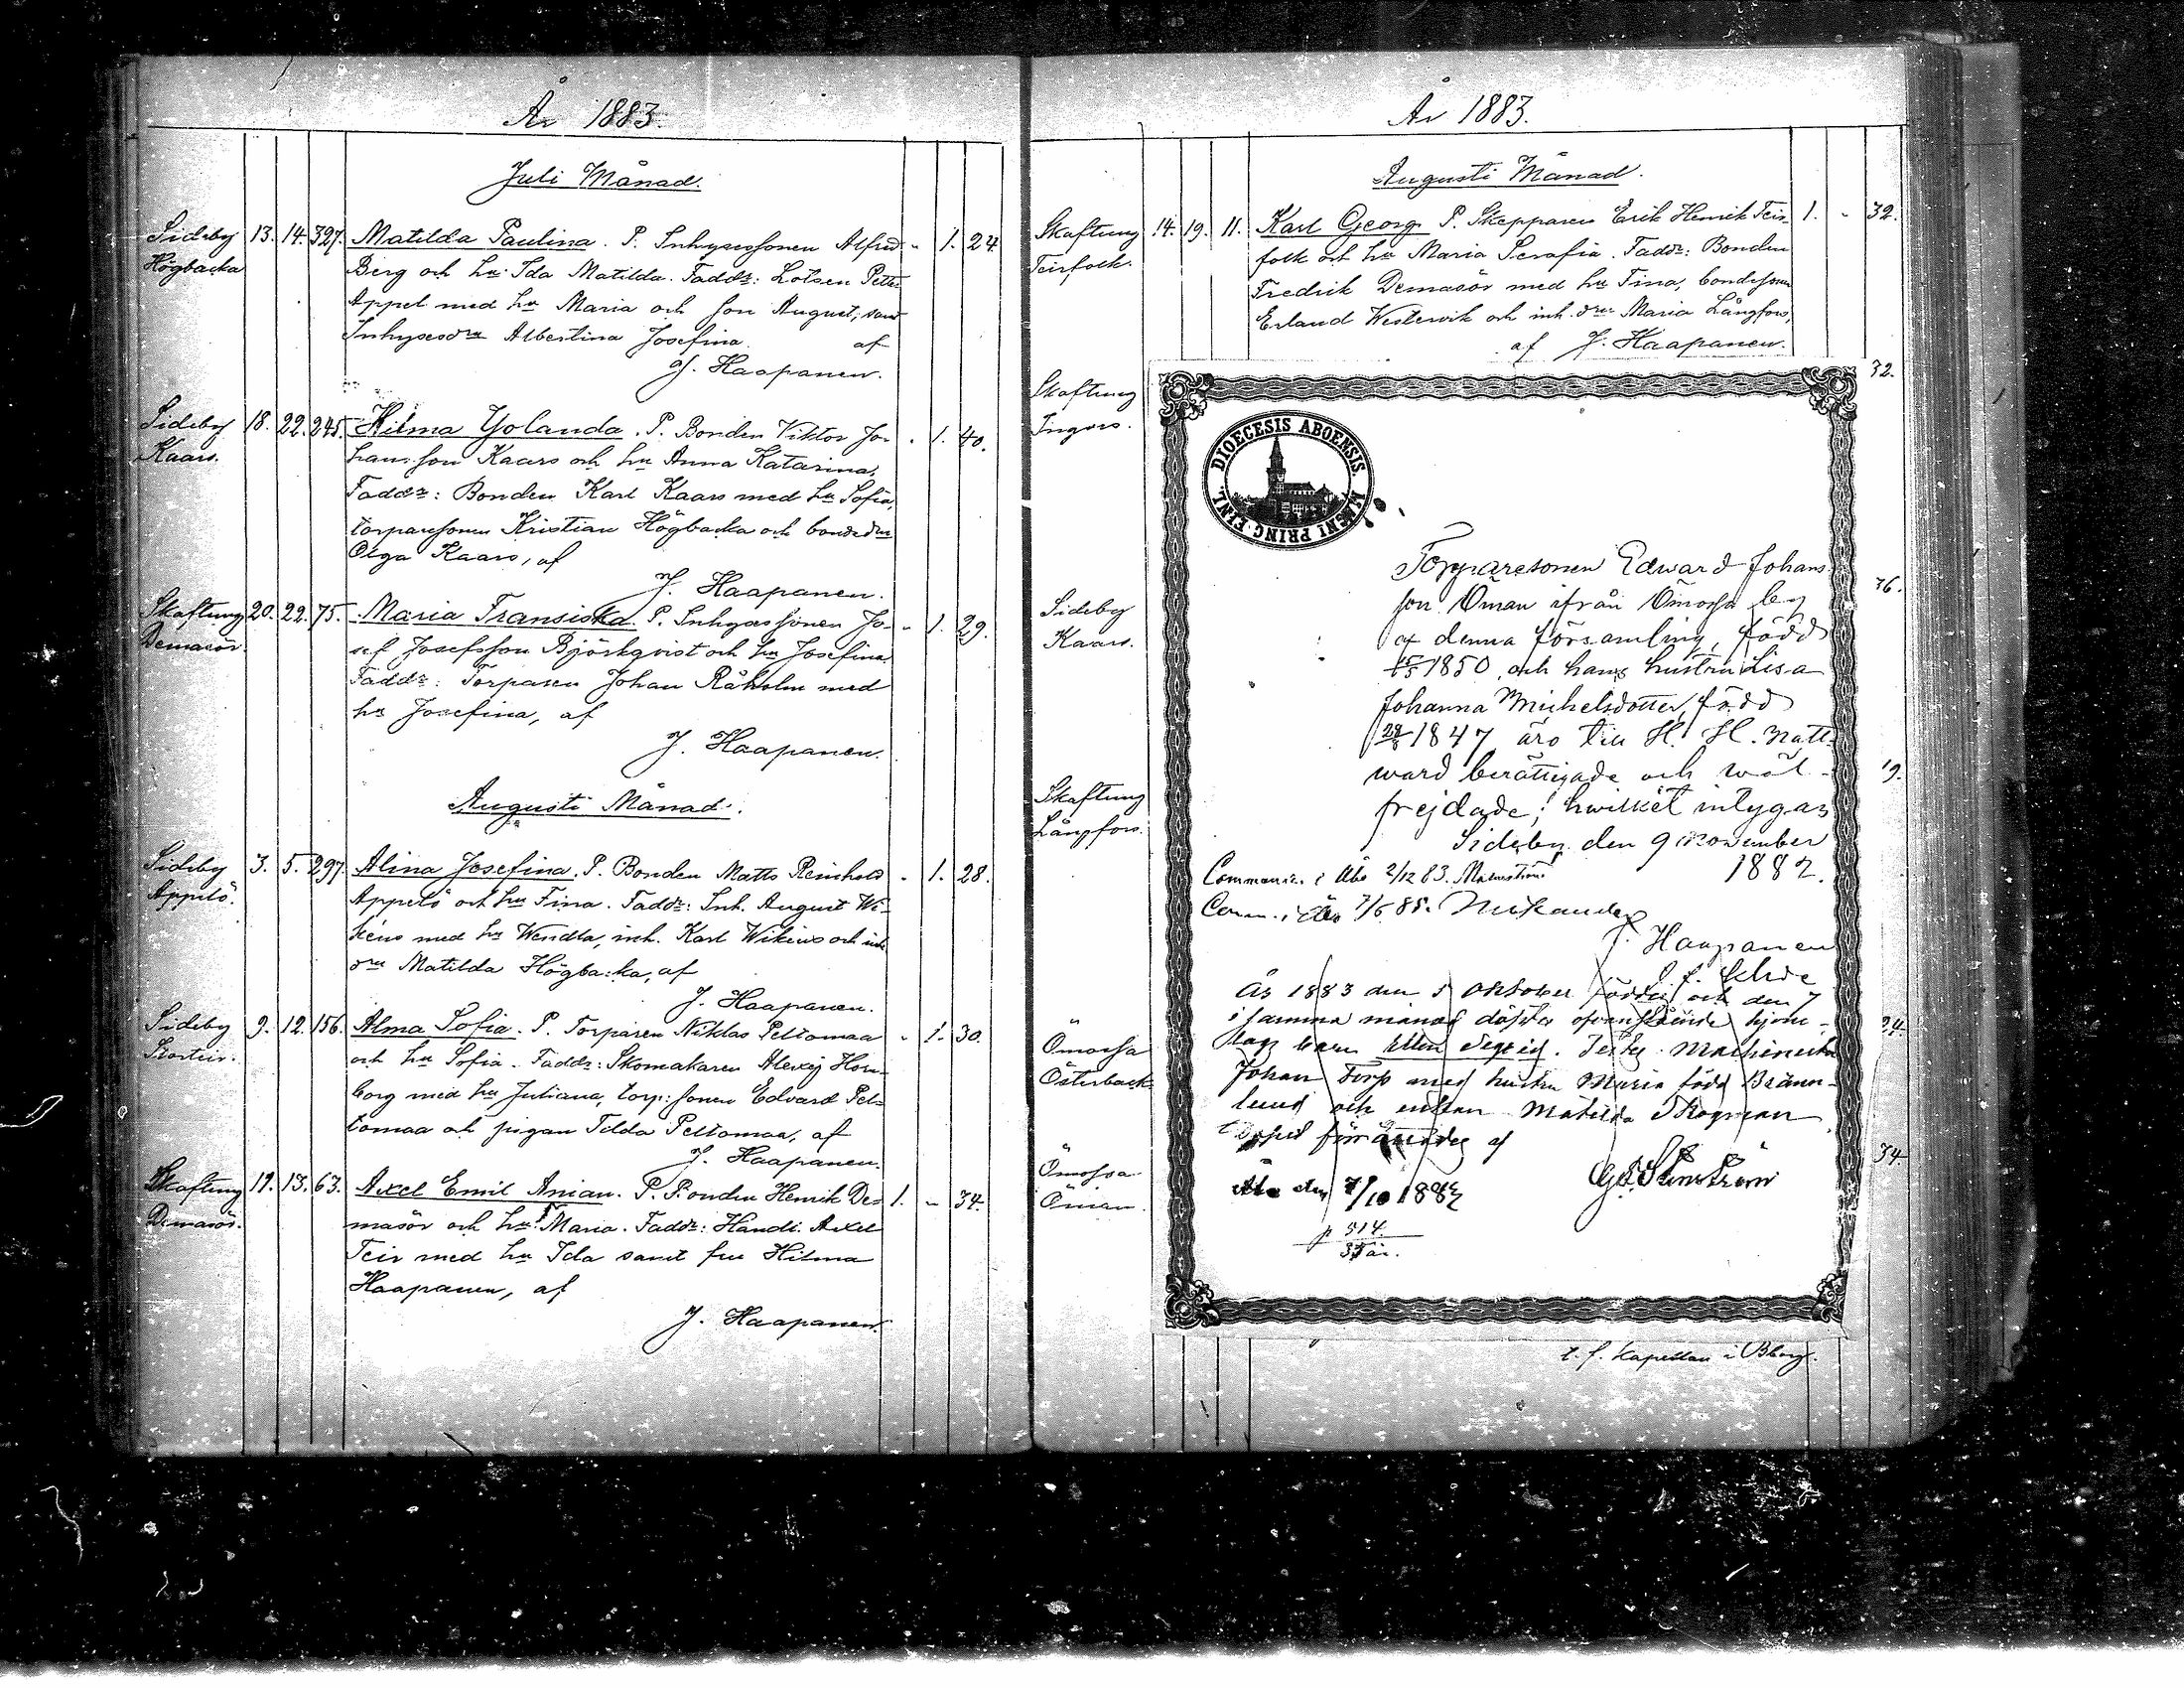 År 1883.
Juli Månad.
Sideby 13. 14. 327. Matilda Paulina. P. Inhysessonen Alfred - 1. 24
Högbacka Berg och hu Ida Matilda. Faddr: Lotsen Petter
Appel med hu Maria och son August, samt
Inhysesdrn Albertina Josefina. af
J. Haapanen.
Sideby 18. 22. 245. Hilma Yolanda. P. Bonden Viktor Jo- - 1. 40.
Kaars. hansson Kaars och hu Anna Katarina.
Faddr: Bonden Karl Kaars med hu Sofia,
torparesonen Kristian Högbacka och bondedrn
Olga Kaars, af
J. Haapanen.
Skaftung 20. 22. 75. Maria Fransiska. P. Inhysessonen Jo- - 1. 29.
Demasör sef Josefsson Björkqvist och hu Josefina
Faddr: Torparen Johan Råholm med
hu Josefina, af
J. Haapanen.
Augusti Månad.
Sideby 3. 5. 297. Alina Josefina. P. Bonden Matts Reinhold - 1. 28.
Appelö. Appelö och hu Fina. Faddr: Inh. August Wi-
kéns med hu Wendla, inh. Karl Wikéns och inh
drn Matilda Högbacka, af
J. Haapanen.
Sideby 9. 12. 156. Alma Sofia. P. Torparen Niklas Peltomaa - 1. 30.
Storteir. och hu Sofia. Faddr: Skomakaren Alexej Horn-
borg med hu Juliana, torp: sonen Edvard Pel-
tomaa och pigan Tilda Peltomaa, af
J. Haapanen.
Skaftung 11. 13. 63. Axel Emil Anian. P. Bonden Henrik De- 1. - 34.
Demasör. masör och hu Maria. Faddr: Handl. Axel
Teir med hu Ida samt fru Hilma
Haapanen, af
J. Haapanen.
År 1883.
Augusti Månad.
Skaftung 14. 19. 11. Karl Georg P. Skepparen Erik Henrik Teir- 1. - 32.
Teirfolk. folk och hu Maria Serafia. Faddr: Bonden
Fredrik Demasör med hu Fina, bondesonen
Erland Westervik och inh. drn Maria Långfors,
af J. Haapanen.
Skaftung 32.
Ingves.
DIOECESIS ABOENSIS. MAGNI PRINC. FINL.
Torparesonen Edward Johans
son Öman ifrån Ömossa by
af denna församling, född
1850, och hans hustru Lisa
Johanna Michelsdotter, född
1847 äro till H. H. Natt-
ward berättigade och wäl-
frejdade; hwilket intygas
Sideby den 9 November
1882.
Sideby 36.
Kaars.
Skaftung 19.
Långfors.
Commun. i Åbo 2/12 83.
Comm. i Åbo 7/6 85.
J. Haapanen
År 1883 den 5 Oktober föddes och den 7
i samma månad döptes ofvanstående hjone-
lags barn Ellen. Testes: Machinisten
Johan Torp med hustru Maria född Bränn-
lund och enkan Matilda Skogman
Dopet förrättades af
Åbo den 7/10 1883
p 314.
Ömossa 24.
Österback
Ömossa 34.
Öman.
t. f. Kapellan i Bborg.